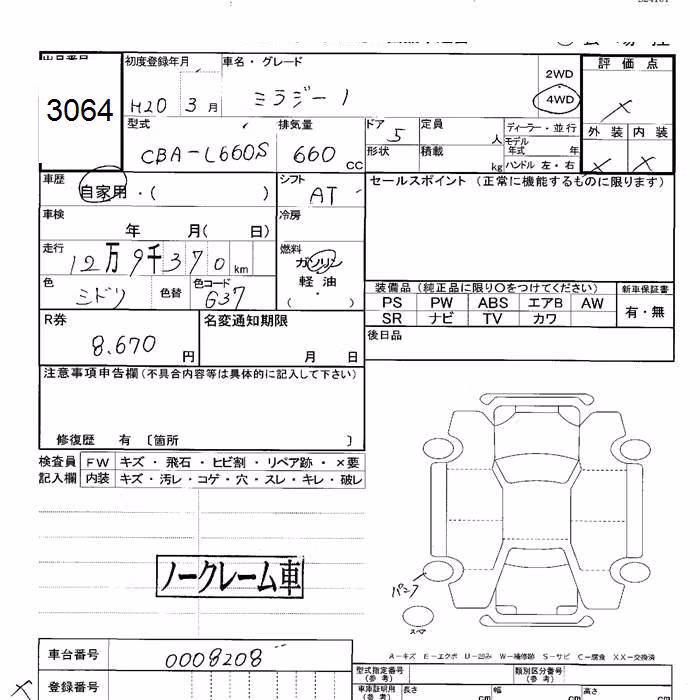 3064
初度登録年月
H20 3月
車名・グレード
ミラジーノ
2WD
4WD
評価点
×
外装 内装
× ×
型式
CBA-L660S
排気量
660 cc
ドア 5
形状
定員 人
積載 kg
ディーラー・並行
モデル年式 年
ハンドル 左・右
車歴
自家用・( )
シフト
AT
セールスポイント (正常に機能するものに限ります)
車検
年 月( 日)
冷房
走行
12万9千370km
燃料
ガソリン
軽油
( ・ )
色
ミドリ
色替
色コード
G37
装備品(純正品に限り○をつけてください)
新車保証書
PS PW ABS エアB AW
有・無
SR ナビ TV カワ
後日品
R券
8.670 円
名変通知期限
月 日
注意事項申告欄(不具合内容等は具体的に記入して下さい)
修復歴 有 〔箇所 〕
検査員 FW キズ・飛石・ヒビ割・リペア跡・×要
記入欄 内装 キズ・汚レ・コゲ・穴・スレ・キレ・破レ
ノークレーム車
パンク
スペア
A－キズ E－エクボ U－凹み W－補修跡 S－サビ C－腐食 XX－交換済
車台番号
0008208
登録番号
×
型式指定番号(参考)
類別区分番号(参考)
車庫証明用(参考)
長さ cm
幅 cm
高さ cm